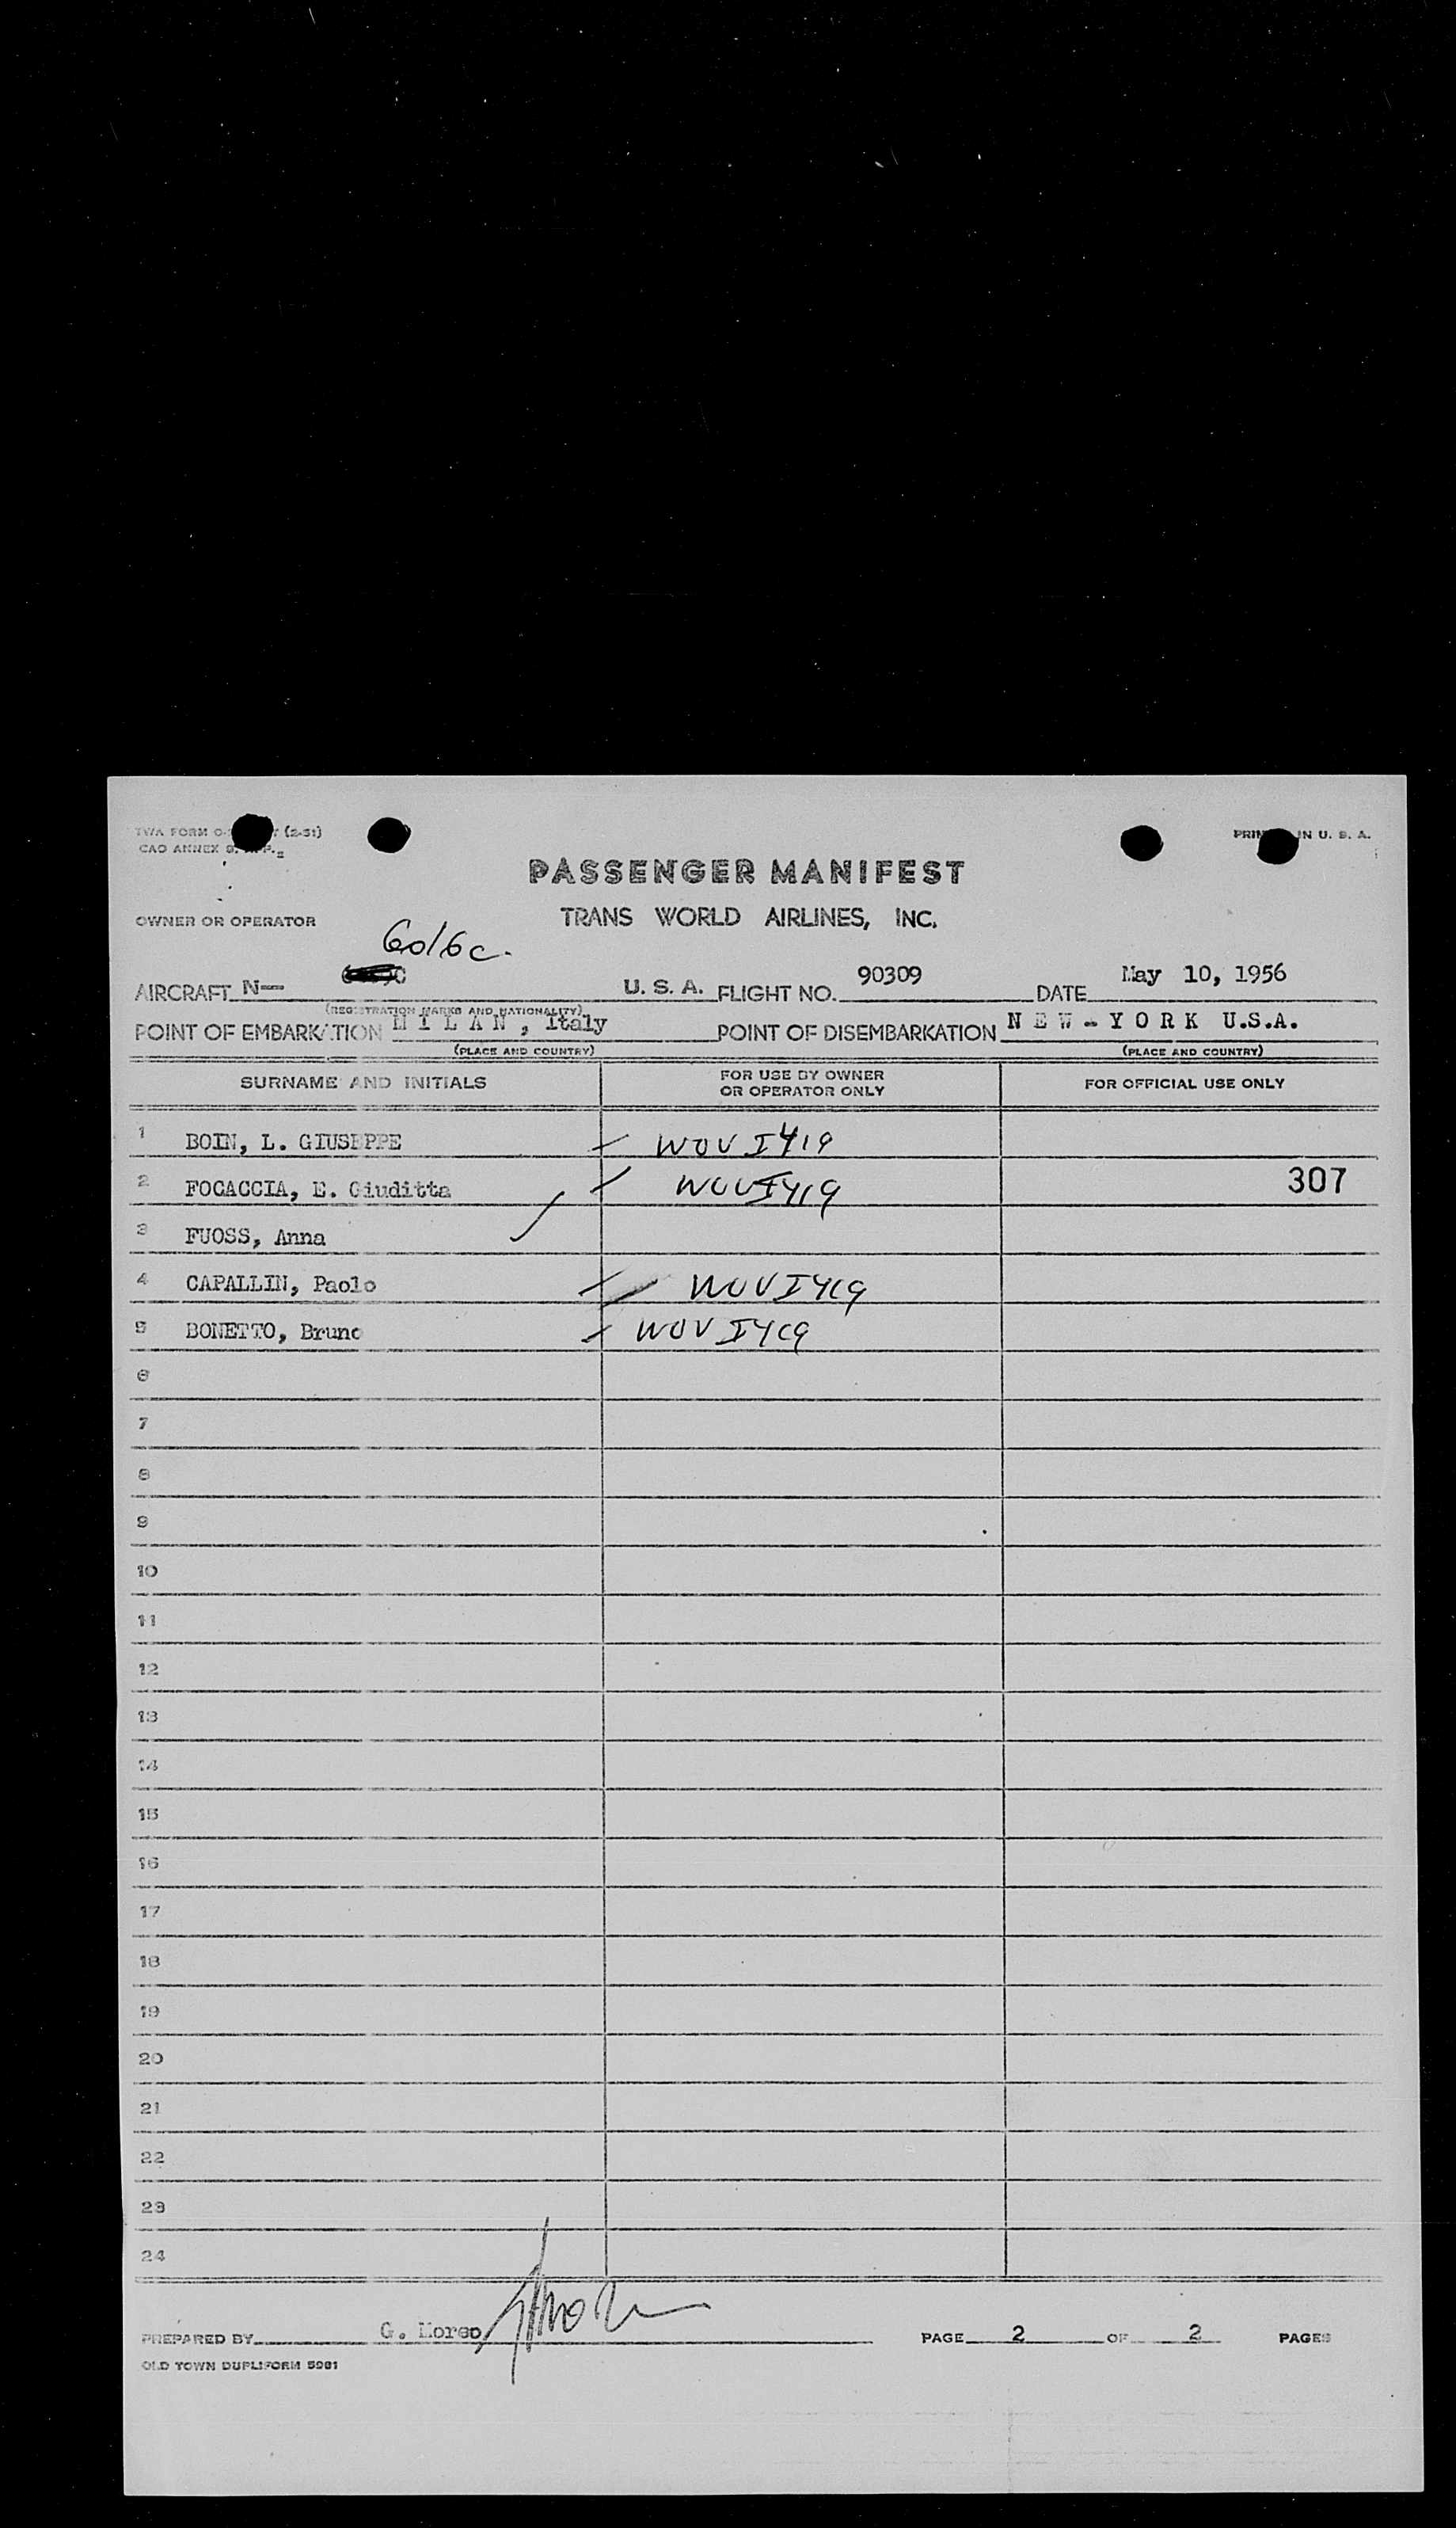 TWA FORM O- (2-51)
PRIN IN U. S. A.
CAO ANNEX 9, APP. 2
PASSENGER MANIFEST
OWNER OR OPERATOR
TRANS WORLD AIRLINES, INC.
6016c.
AIRCRAFT N— U. S. A. FLIGHT NO. 90309 DATE May 10, 1956
(REGISTRATION MARKS AND NATIONALITY)
POINT OF EMBARKATION M I L A N , Italy POINT OF DISEMBARKATION N E W - Y O R K U.S.A.
(PLACE AND COUNTRY) (PLACE AND COUNTRY)
SURNAME AND INITIALS FOR USE BY OWNER OR OPERATOR ONLY FOR OFFICIAL USE ONLY
1 BOIN, L. GIUSEPPE WOV I419
2 FOCACCIA, E. Giuditta WOV I419 307
3 FUOSS, Anna
4 CAPALLIN, Paolo WOV I419
5 BONETTO, Bruno WOV I419
6
7
8
9
10
11
12
13
14
15
16
17
18
19
20
21
22
23
24
PREPARED BY G. PAGE 2 OF 2 PAGES
OLD TOWN DUPLIFORM 5981